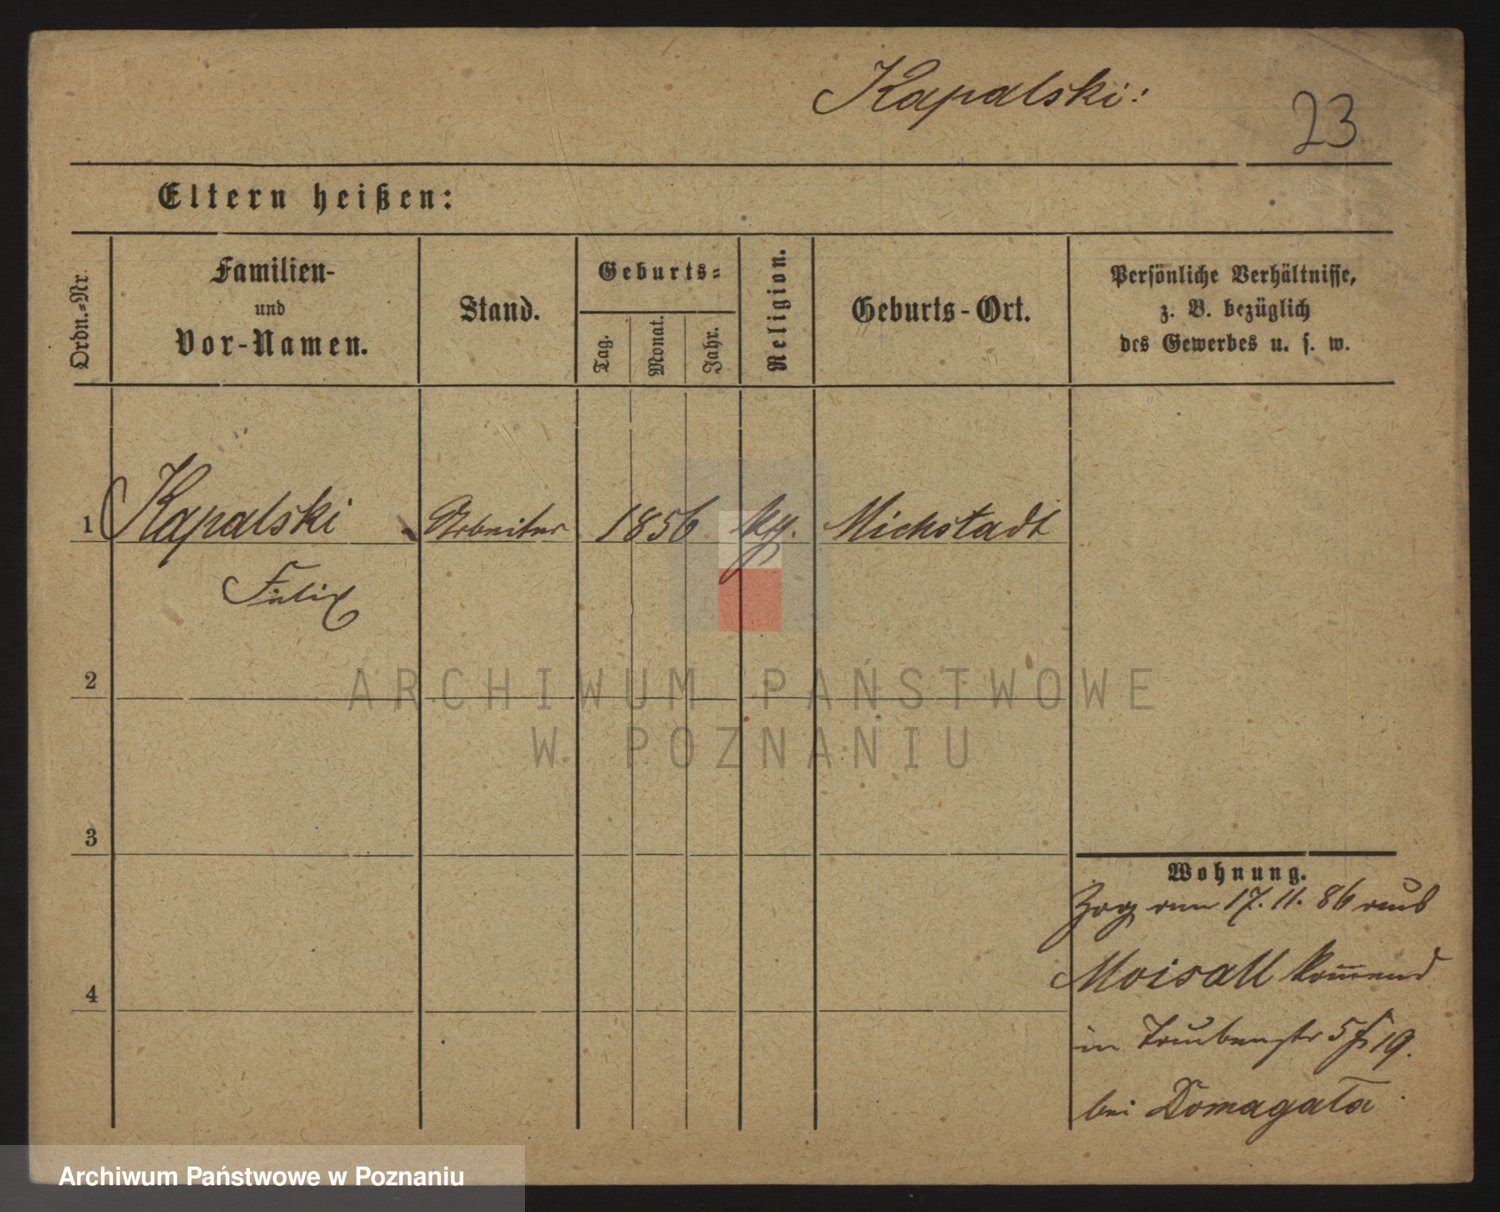 Kapalski:
23
Eltern heißen:
Ordn.-Nr.
Familien-
und
Vor-Namen.
Stand.
Geburts-
Tag.
Monat.
Jahr.
Religion.
Geburts-Ort.
Persönliche Verhältnisse,
z. B. bezüglich
des Gewerbes u. s. w.
1 Kapalski Arbeiter 1856 kth. Michstadt
Felix
2
3
4
Wohnung.
Zog am 17. 11. 86 aus
Moisall kommend
in Taubenstr 5 19.
bei Domagała
ARCHIWUM PAŃSTWOWE
W POZNANIU
Archiwum Państwowe w Poznaniu